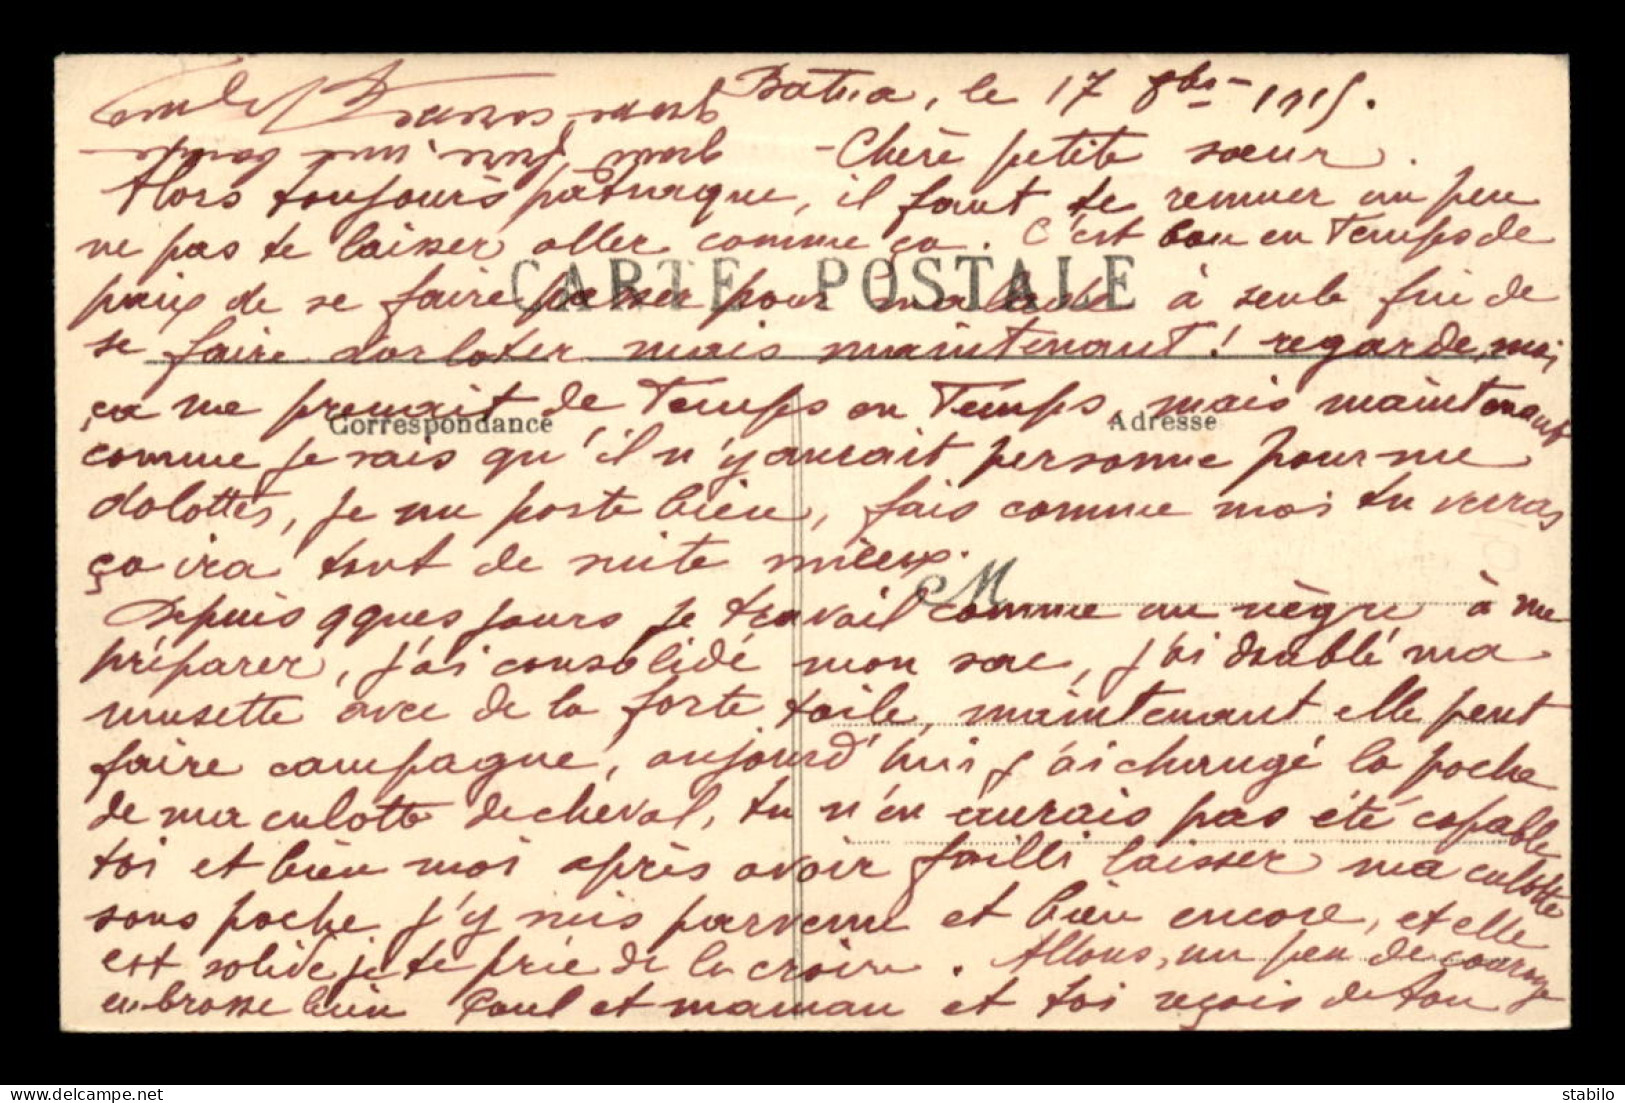 Batna, le 17 8bre 1915.
- Chère petite sœur.
Alors toujours patraque, il faut te remuer un peu
ne pas te laisser aller comme ça. C'est bon en temps de
paix de se faire passer pour malade à seule fin de
CARTE POSTALE
se faire dorloter mais maintenant! regarde, moi
ça me prenait de temps en temps mais maintenant
Correspondance
Adresse
comme je sais qu'il n'y aurait personne pour me
dolotter, je me porte bien, fais comme moi tu verras
ça ira tout de suite mieux.
M
Depuis qques jours je travail comme un nègre à me
préparer, j'ai consolidé mon sac, j'ai doublé ma
musette avec de la forte toile, maintenant elle peut
faire campagne, aujourd'hui j'ai changé la poche
de ma culotte de cheval, tu n'en aurais pas été capable
toi et bien moi après avoir failli laisser ma culotte
sans poche j'y suis parvenu et bien encore, et elle
est solide je te prie de la croire. Allons, un peu de courage
embrasse bien Paul et maman et toi reçois de ton